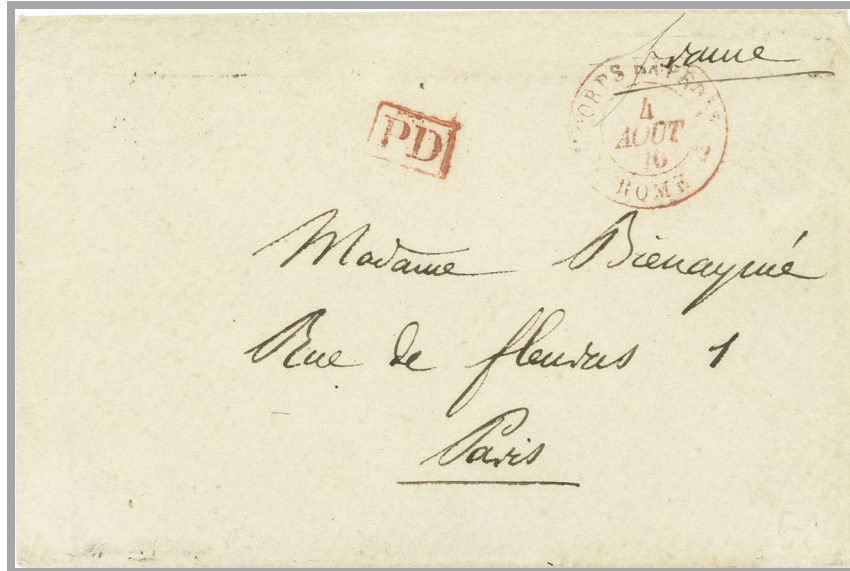 france
CORPS EXPED
4
AOUT
ROME
PD
Madame Bienaymé
Rue de fleurus 1
Paris